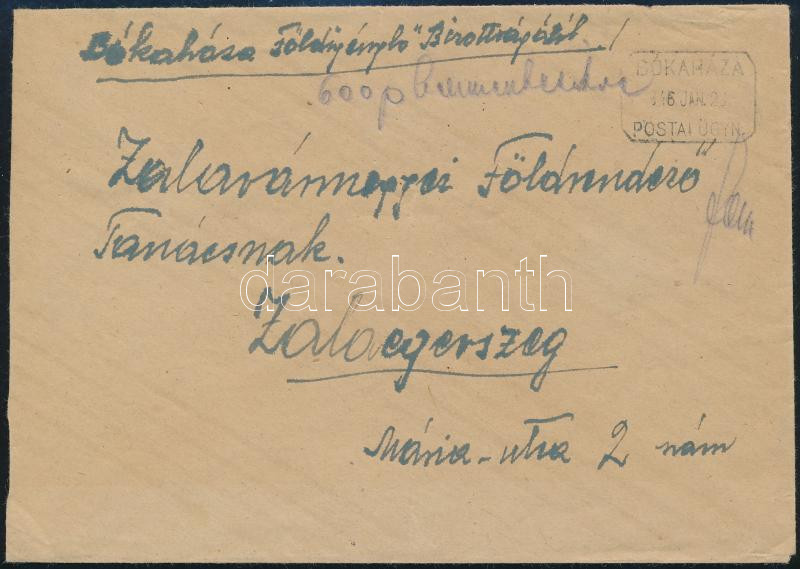 Bókaháza Földigénylő Bizottságától
600p bérmentesítve
BÓKAHÁZA
946 JAN. 2
POSTAI ÜGYN.
Zalavármegyei Földrendező
Tanácsnak.
darabanth
Zalaegerszeg
Mária-utca 2 szám